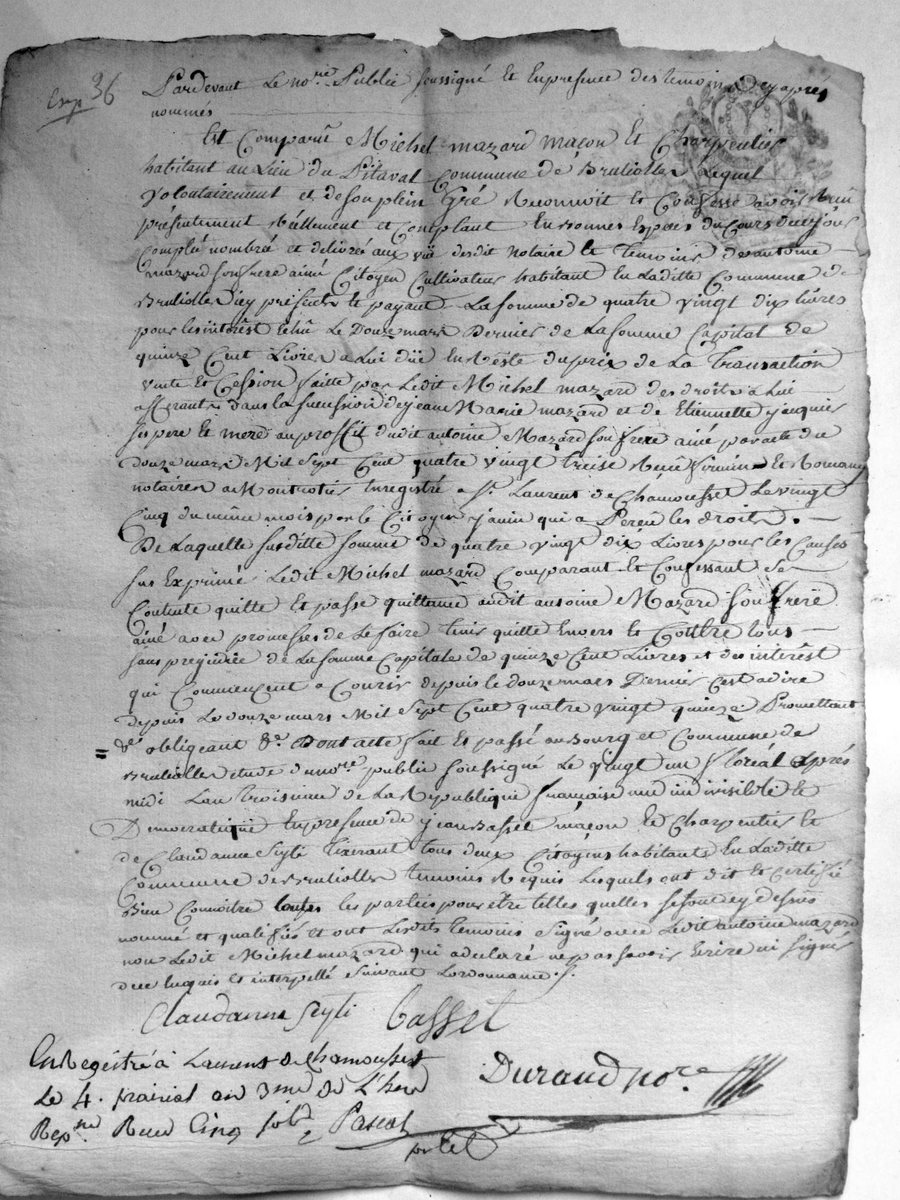 Exp 36
Pardevant Le no.re Public soussigné Et En presence des temoins cy aprés
nommés
Est Comparû Michel mazard maçon Et Charpentier
habitant au Lieu du Pitaval Commune de Bruliolles Lequel
Volontairement et de son plein Gré Reconnoit Et Confesse avoir Reçu
présentement Réellement et Comptant En bonnes Espéces du Cours de ce jour
Compté nombré et delivré aux vüe desdit notaire Et temoins de antoine
mazard son frere ainé Citoyen Cultivateur habitant En Laditte Commune de
Bruliolles icy présent Et payant La somme de quatre vingt dix Livres
pour les interêst Echû Le Douze mars Dernier de La somme Capital de
quinze Cent Livres a Lui düe En Reste du prix de La Transaction
vente Et Cession faitte par Ledit Michel mazard des droits a Lui
afferants dans la suession de jean Marie mazard et de Etiennette jauquier
ses pere Et mere au proffit dudit antoine Mazard son frere ainé par acte du
douze mars Mil Sept Cent quatre vingt treise Et Romany
notaires a Montrotier Enregistré a St. Laurent de Chamousset Le vingt
Cinq du même mois par le Citoyen janin qui a Perçu les droits. —
De Laquelle susditte somme de quatre vingt dix Livres pour les Causes
sus Exprimé Ledit Michel mazard Comparant Et Confessant se
Contente quitte Et passe quittance audit antoine Mazard son frere
ainé avec promesses de Le faire tenir quitte Envers Et Contre tous —
sans prejudice de La somme Capitale de quinze Cent Livres et des interêst
qui Commencent a Courir depuis le douze mars Dernier C'est a dire
depuis Le douze mars Mil Sept Cent quatre vingt quinze Promettant
&a obligeant &a. Dont acte fait Et passé au Bourg et Commune de
Brulioles étude du no.re public soussigné Le vingt un floréal Aprés
midi L'an troisieme de La Republique française une indivisible Et
Democratique En presence de jean Basset maçon Et Charpentier Et
de Claudanne Seyti tixerant tous deux Citoyens habitants En Laditte
Commune de Brulioles temoins Requis Lesquels ont dit et Certifié
Bien Connoitre toutes les parties pour être telles quelles se sont cy dessus
nommé et qualifiés et ont Lesdits temoins Signé avec Ledit antoine mazard
non Ledit Michel mazard qui a declaré ne pas savoir Ecrire ni signer
de ce Enquis et interpellé suivant L'ordonnance
Claudanne Seyti Basset
Enregistré à Laurent de Chamousset
Le 4. prairial an 3me de L'here
Rep.ne Reçu Cinq sols Pascal
Durand no.re